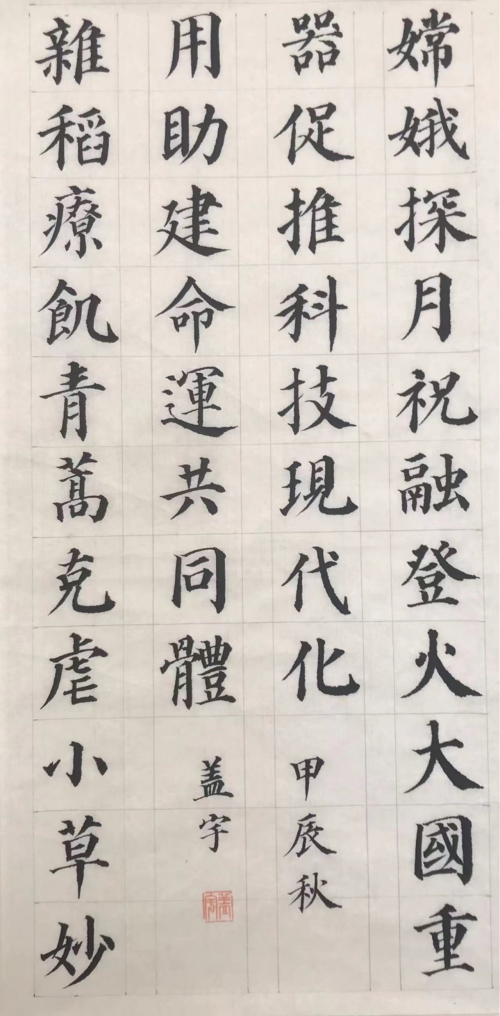 嫦娥探月祝融登火大國重
器促推科技現代化
甲辰秋
雜稻療飢青蒿克虐小草妙
用助建命運共同體
盖宇